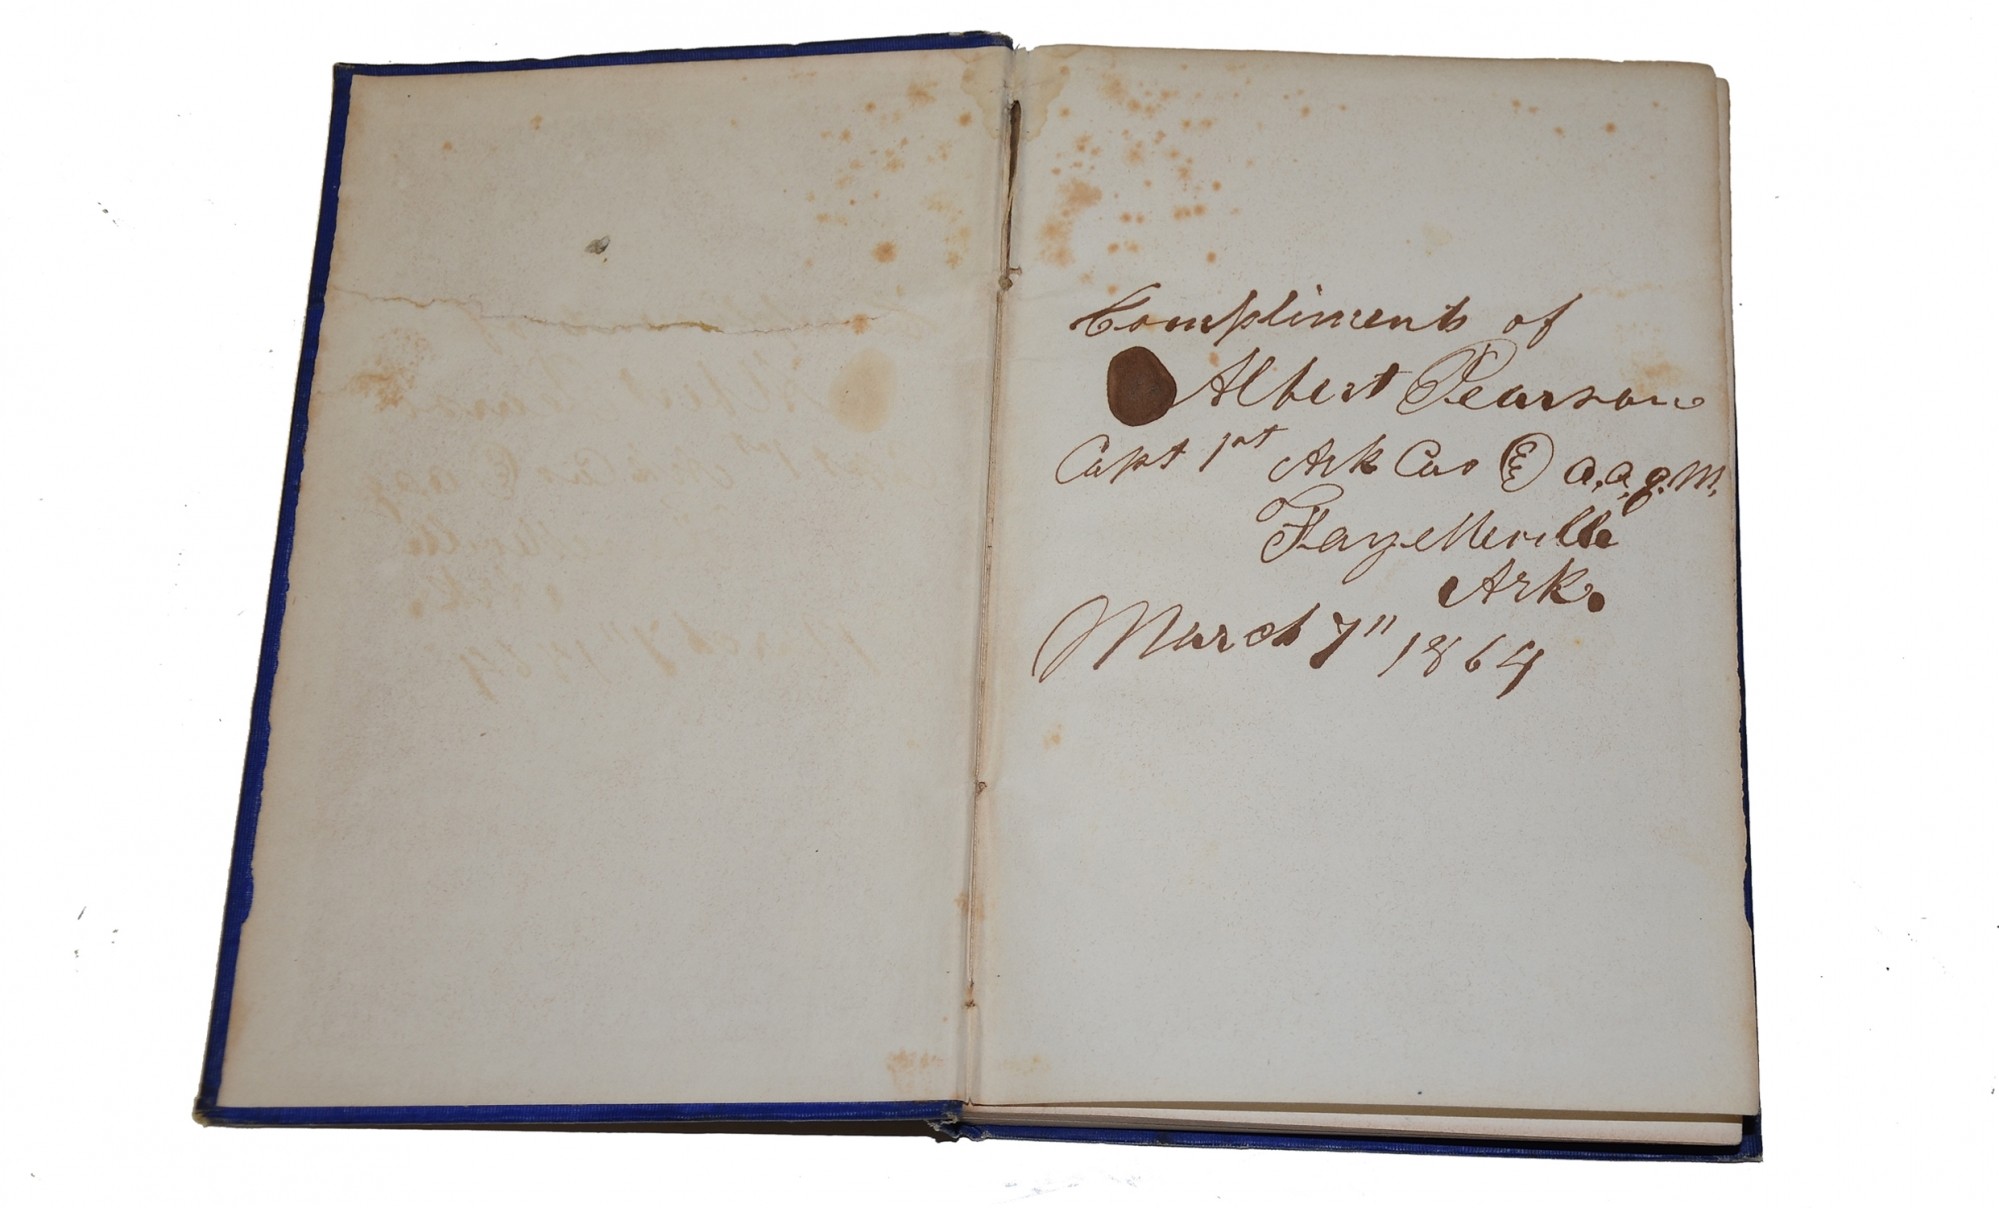 Compliments of
Albert Pearson
Capt 1st Ark Cav & a.a.q.M.
Fayetteville
Ark.
March 7" 1864